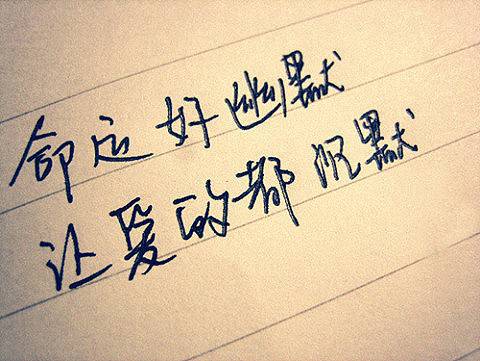 命运好幽默
让爱的都沉默